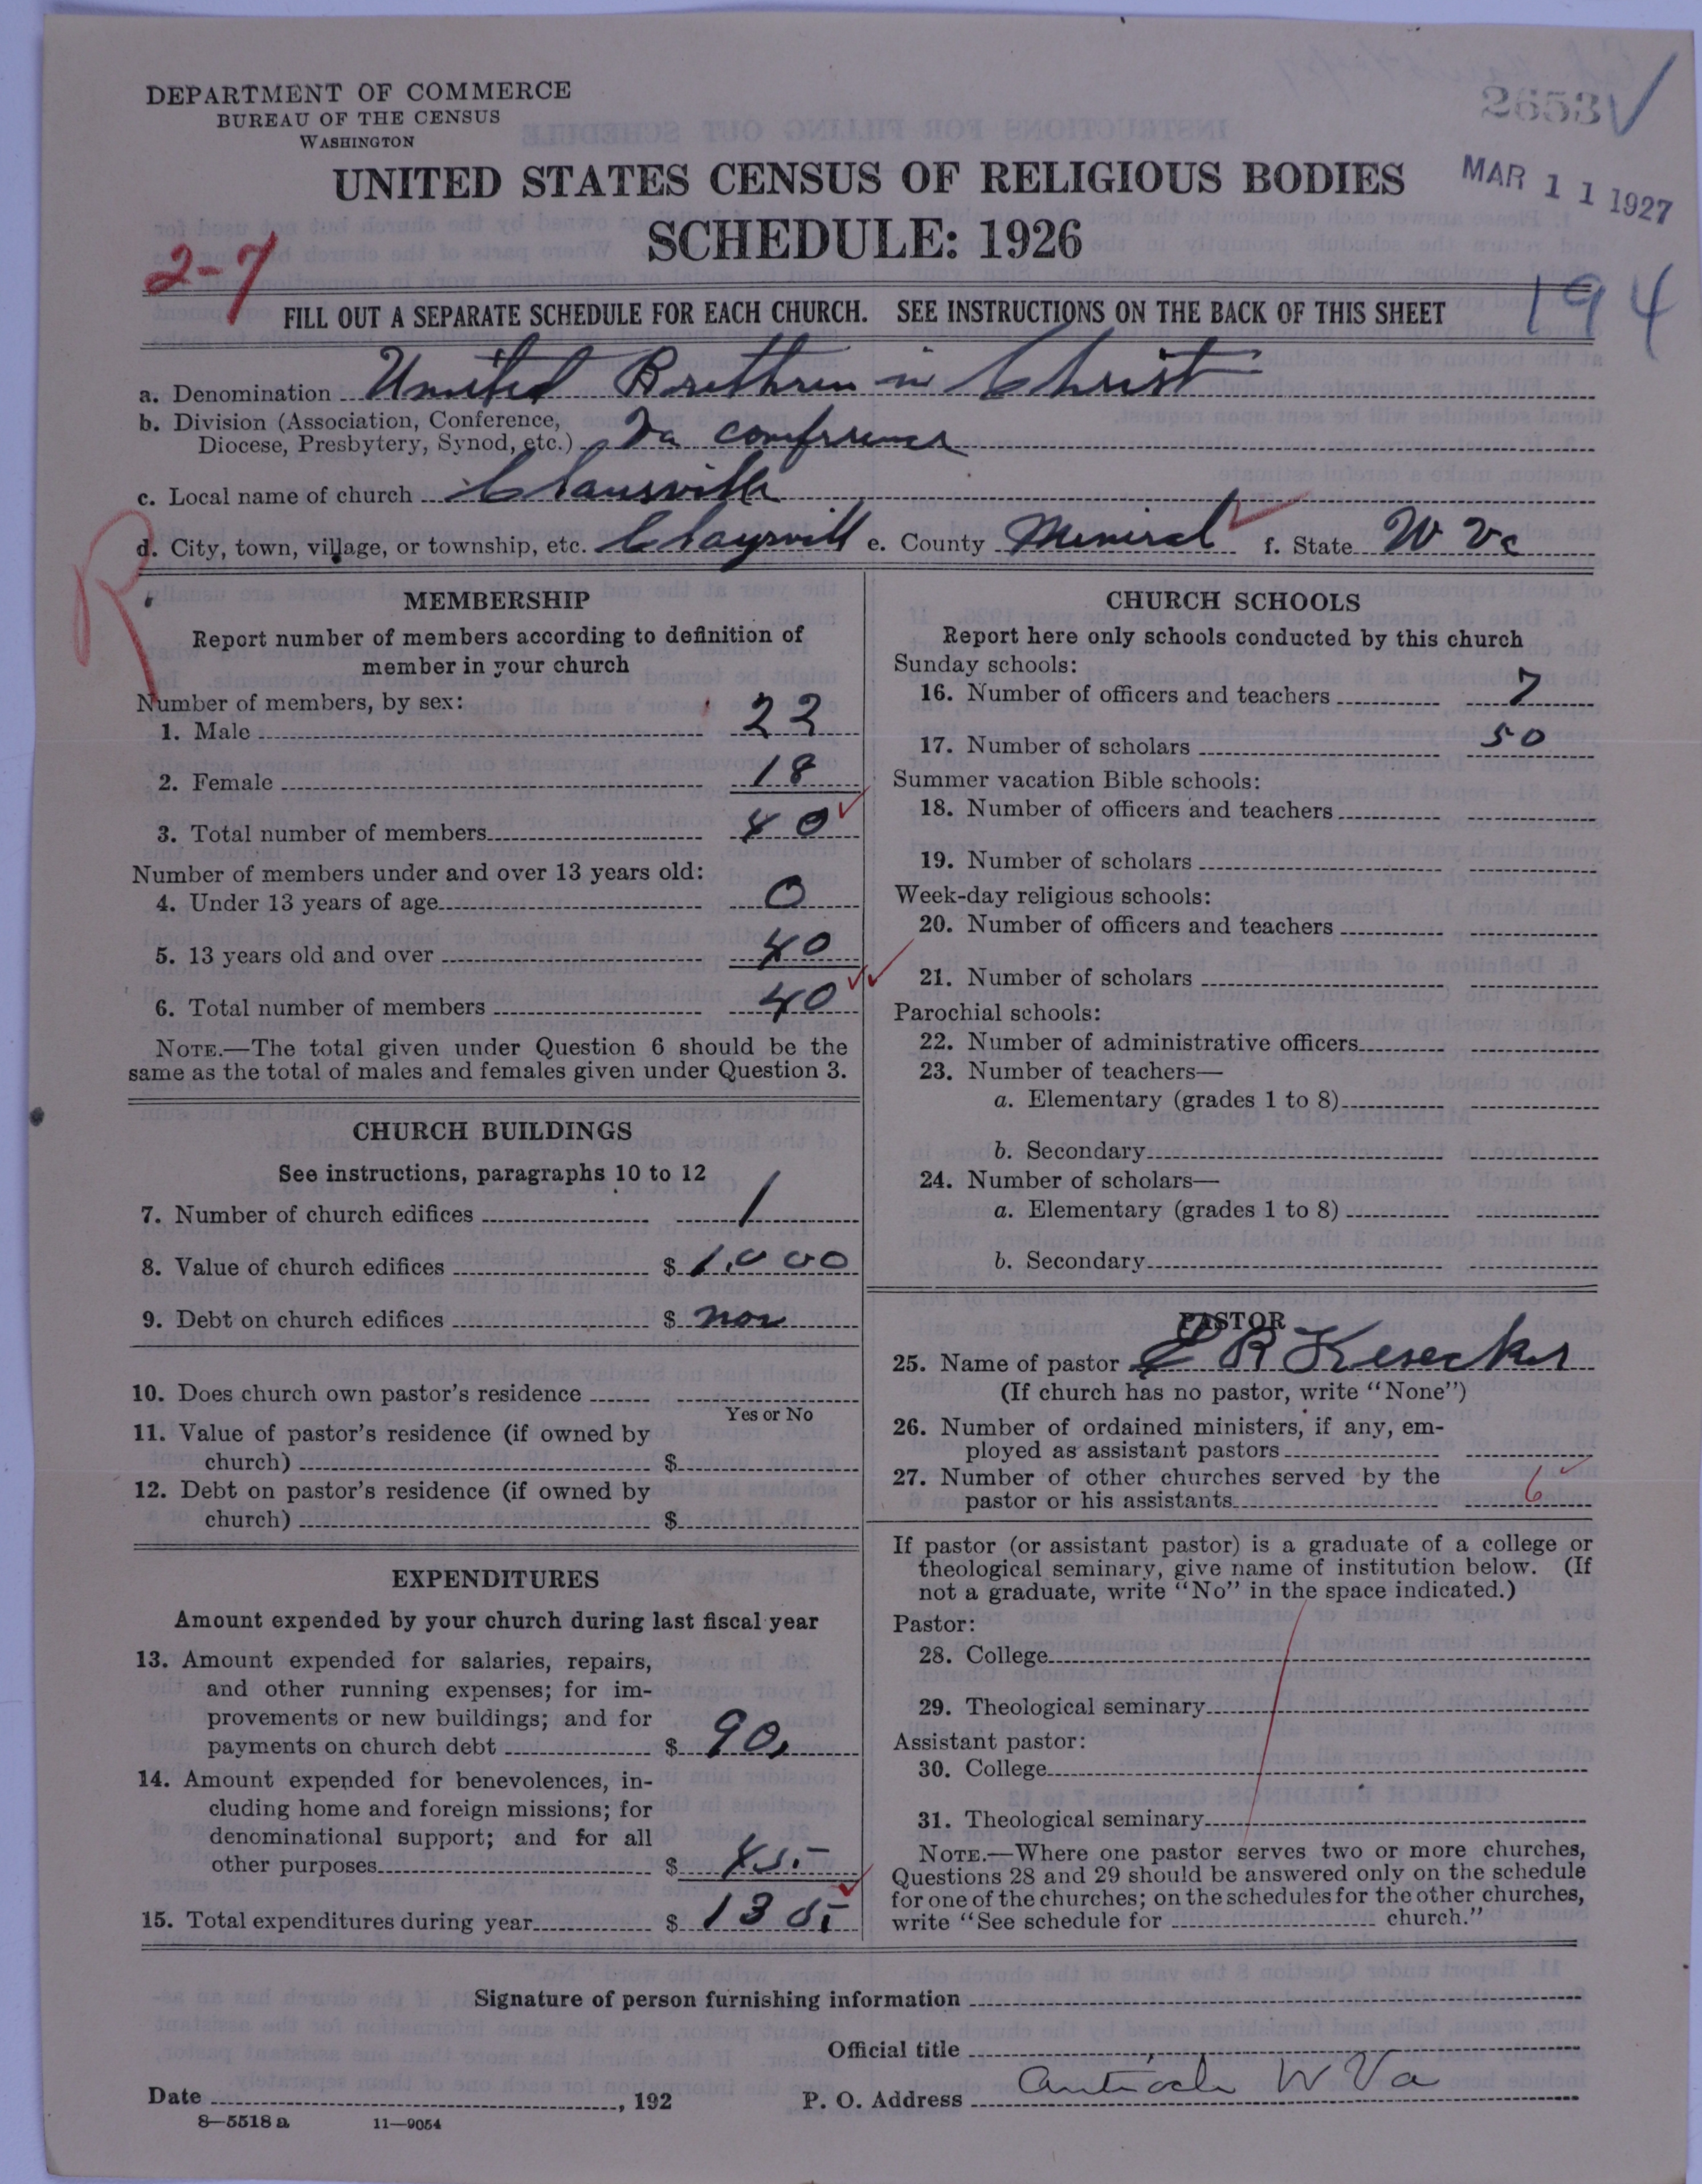 DEPARTMENT OF COMMERCE
BUREAU OF THE CENSUS
WASHINGTON
UNITED STATES CENSUS OF RELIGIOUS BODIES
SCHEDULE: 1926
MAR 11 1927
2-7
194
FILL OUT A SEPARATE SCHEDULE FOR EACH CHURCH. SEE INSTRUCTIONS ON THE BACK OF THIS SHEET
a. Denomination United Brethren in Christ
b. Division (Association, Conference,
Diocese, Presbytery, Synod, etc.) Va conference
c. Local name of church
d. City, town, village, or township, etc. Claysvill e. County Mineral f. State W Va
R
MEMBERSHIP
Report number of members according to definition of
member in your church
Number of members, by sex:
1. Male 22
2. Female 18
3. Total number of members 40
Number of members under and over 13 years old:
4. Under 13 years of age 0
5. 13 years old and over 40
6. Total number of members 40
NOTE.—The total given under Question 6 should be the
same as the total of males and females given under Question 3.
CHURCH BUILDINGS
See instructions, paragraphs 10 to 12
7. Number of church edifices 1
8. Value of church edifices $ 1.000
9. Debt on church edifices $ non
10. Does church own pastor's residence
Yes or No
11. Value of pastor's residence (if owned by
church) $
12. Debt on pastor's residence (if owned by
church) $
EXPENDITURES
Amount expended by your church during last fiscal year
13. Amount expended for salaries, repairs,
and other running expenses; for im-
provements or new buildings; and for
payments on church debt $ 90.
14. Amount expended for benevolences, in-
cluding home and foreign missions; for
denominational support; and for all
other purposes $ 45.
15. Total expenditures during year $ 135
CHURCH SCHOOLS
Report here only schools conducted by this church
Sunday schools:
16. Number of officers and teachers 7
17. Number of scholars 50
Summer vacation Bible schools:
18. Number of officers and teachers
19. Number of scholars
Week-day religious schools:
20. Number of officers and teachers
21. Number of scholars
Parochial schools:
22. Number of administrative officers
23. Number of teachers—
a. Elementary (grades 1 to 8)
b. Secondary
24. Number of scholars—
a. Elementary (grades 1 to 8)
b. Secondary
PASTOR
25. Name of pastor E R Kesecker
(If church has no pastor, write "None")
26. Number of ordained ministers, if any, em-
ployed as assistant pastors
27. Number of other churches served by the
pastor or his assistants 6
If pastor (or assistant pastor) is a graduate of a college or
theological seminary, give name of institution below. (If
not a graduate, write "No" in the space indicated.)
Pastor:
28. College
29. Theological seminary
Assistant pastor:
30. College
31. Theological seminary
NOTE.—Where one pastor serves two or more churches,
Questions 28 and 29 should be answered only on the schedule
for one of the churches; on the schedules for the other churches,
write "See schedule for church."
Signature of person furnishing information
Official title
Date , 192 P. O. Address Antioch W Va
8—5518 a 11—9054